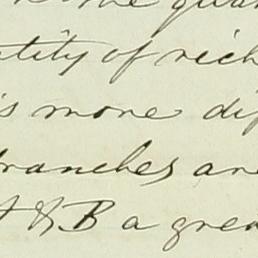 the qua
ntity of rich
is more dif
branches are
& B a grea